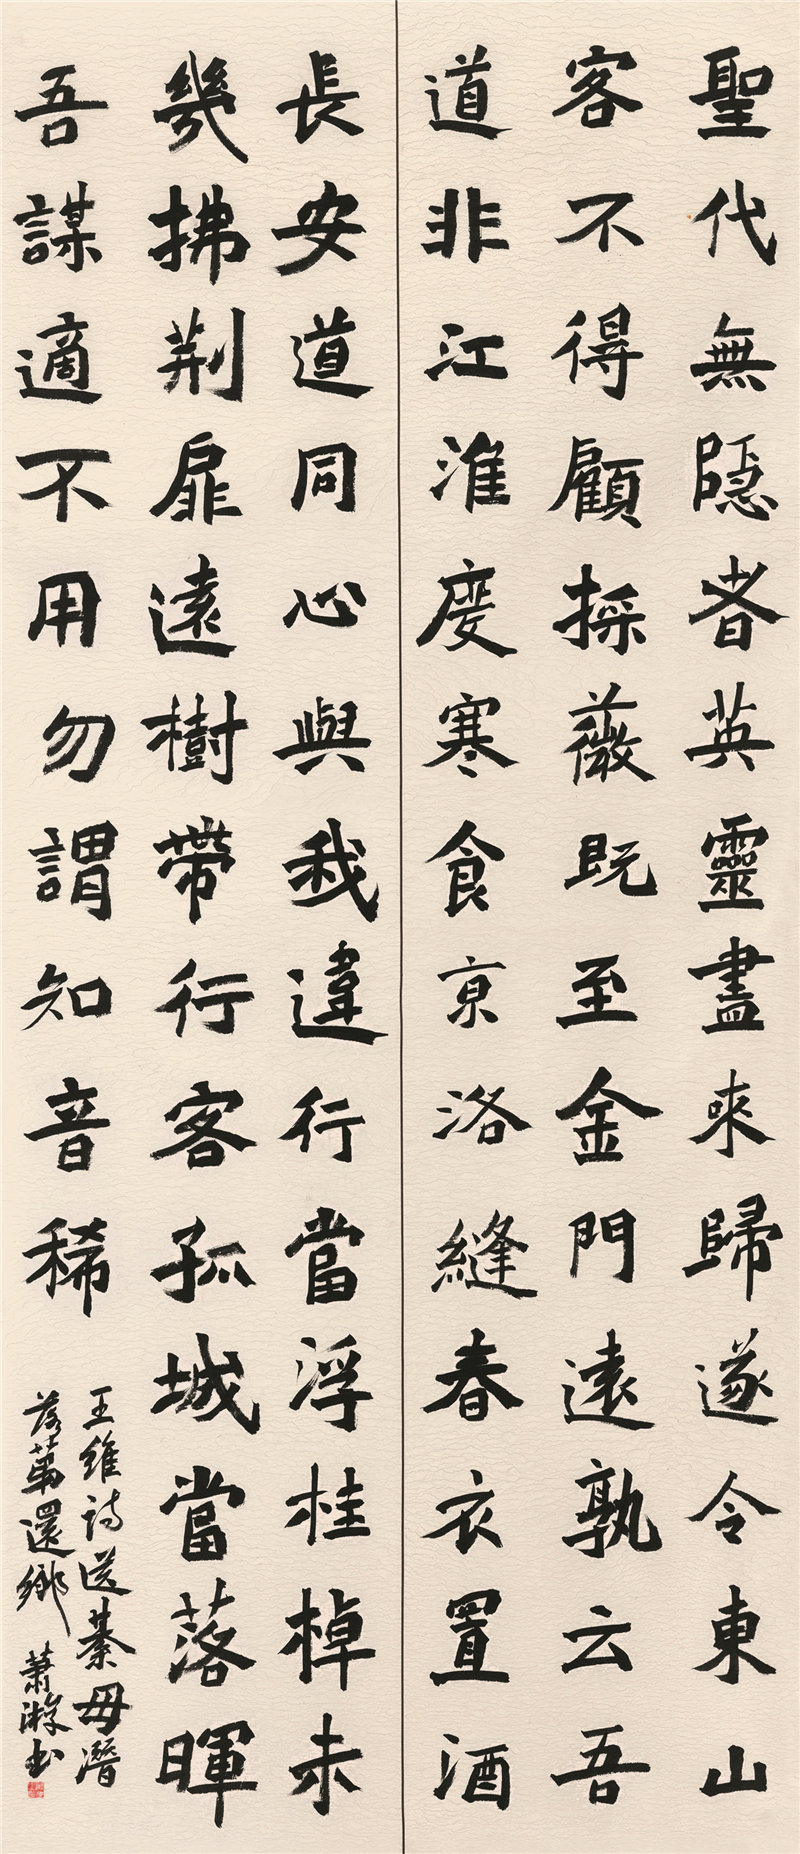 聖代無隱者英靈盡來歸遂令東山
客不得顧採薇既至金門遠孰云吾
道非江淮度寒食京洛縫春衣置酒
長安道同心與我違行當浮桂棹未
幾拂荆扉遠樹帶行客孤城當落暉
吾謀適不用勿謂知音稀
王維詩送綦毋潛
落第還鄉 蕭游书